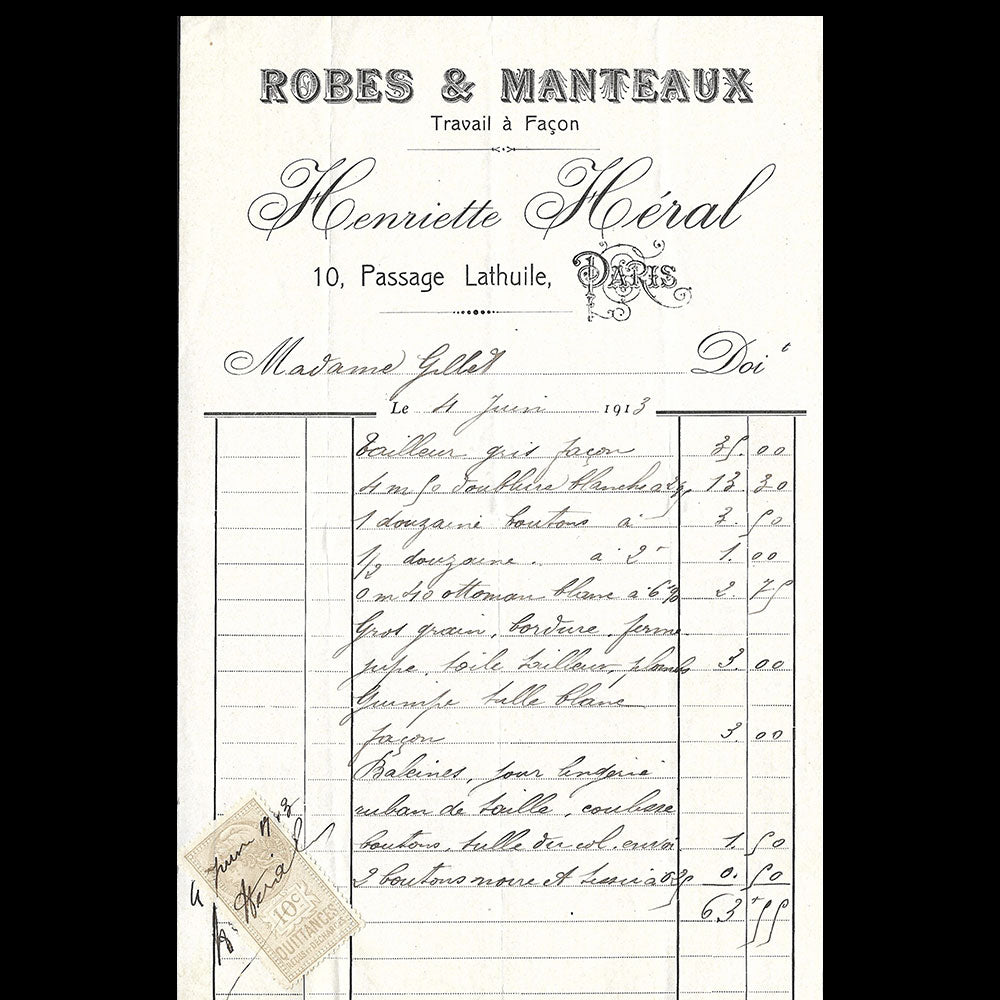 ROBES & MANTEAUX
Travail à Façon
Henriette Héral
10, Passage Lathuile, PARIS
Madame Gillet Doit
Le 4 Juin 1913
Tailleur gris façon 35. 00
4 m 50 doublure blanche à 13. 30
1 douzaine boutons à 3. 50
1/2 douzaine . à 2 1. 00
0 m 40 ottoman blanc à 6 2. 75
Gros grain, bordure, ferme
jupe, toile tailleur, plombs 3. 00
Guimpe tulle blanc
façon 3. 00
Baleines, jour lingerie
ruban de taille, coulisse
boutons, tulle du col, envoi 1. 50
2 boutons noirs et 0. 50
63 55
4 Juin 1913
Héral
10c
QUITTANCES